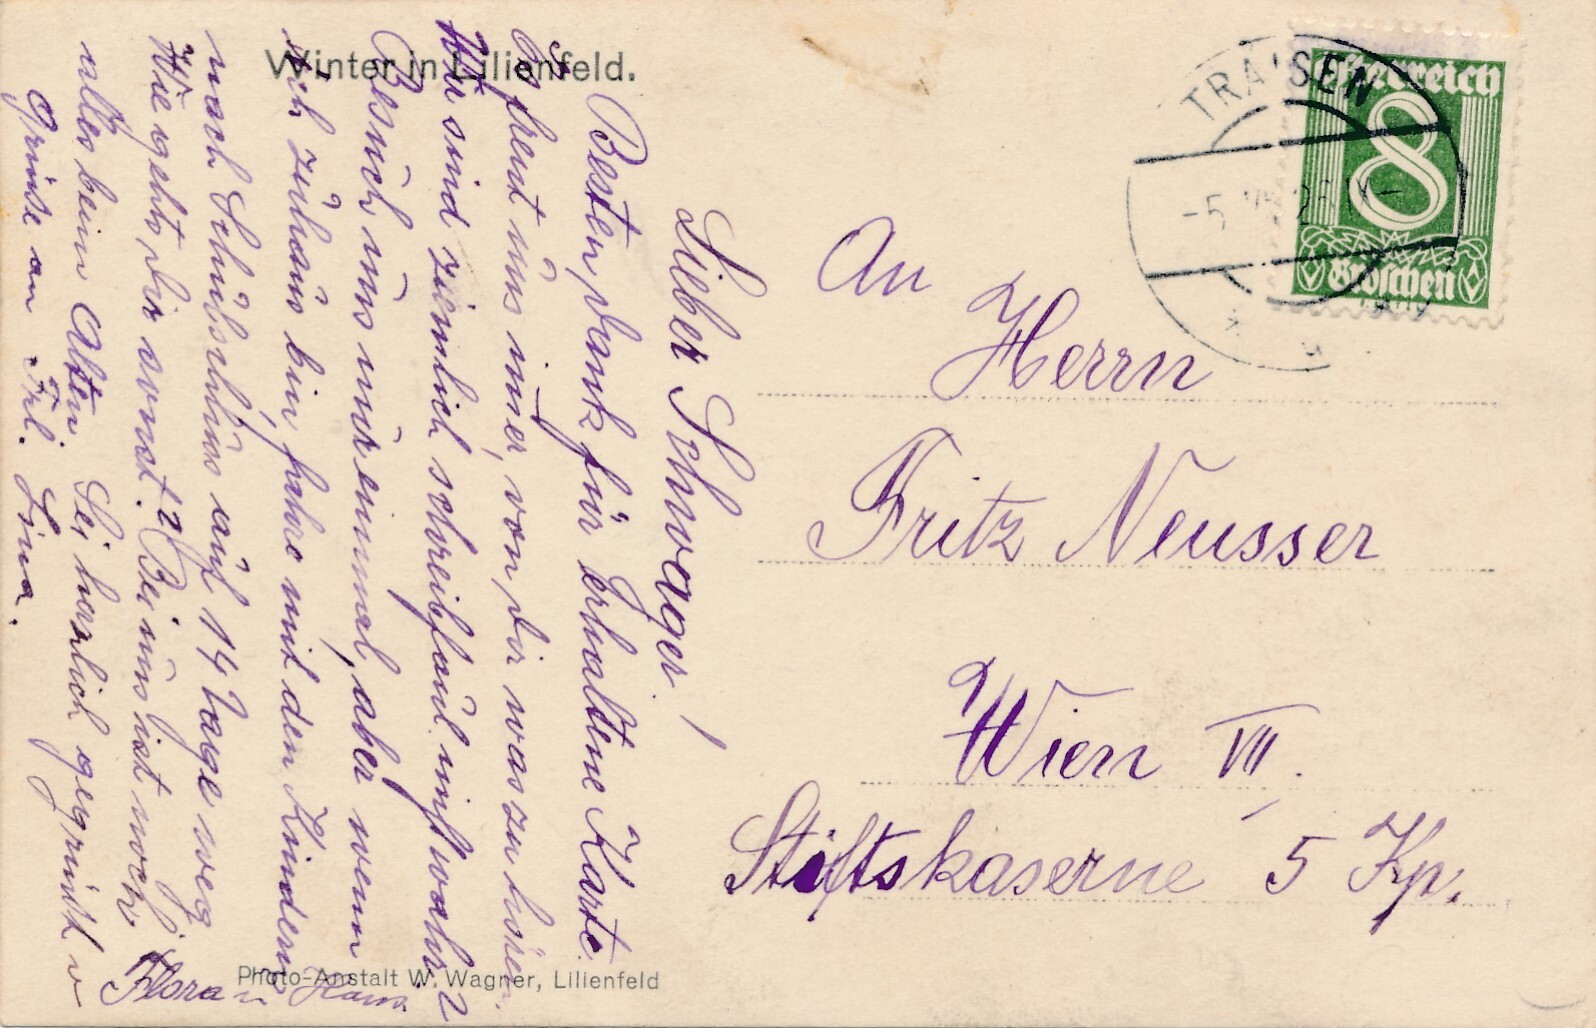 Winter in Lilienfeld.
Lieber Schwager!
Besten Dank für erhaltene Karte.
Es freut uns immer, von dir was zu hören.
Wir sind ziemlich schreibfaul nicht wahr?
Besuch uns nur einmal, aber wenn
ich zuhaus bin, fahre mit den Kindern
nach auf 14 Tage weg
Wie gehts dir sonst? Bei uns ist noch
alles beim Alten. Sei herzlich gegrüßt v
Flora u Hans
Grüße an Frl. Lina.
Photo-Anstalt W. Wagner, Lilienfeld
An
Herrn
Fritz Neusser
Wien VII.
Stiftskaserne 5 Kp.
TRAISEN
Österreich
8
Groschen